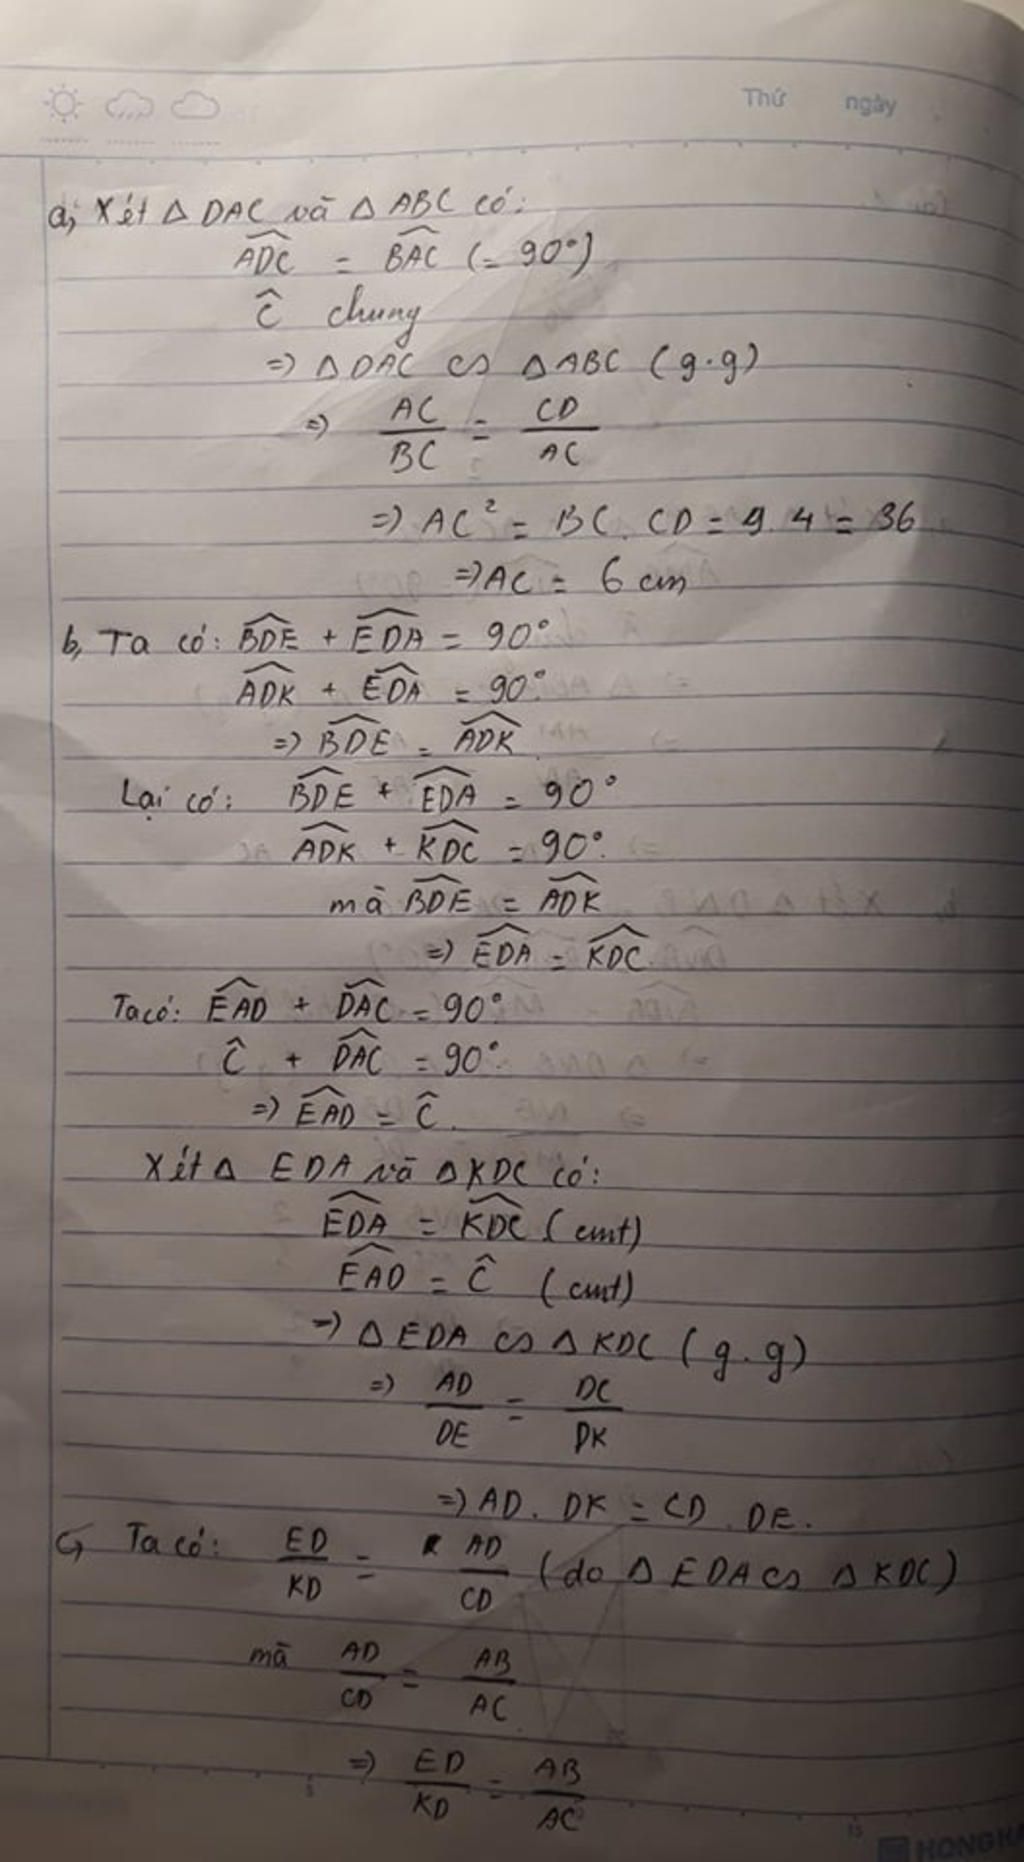 Thứ ngày
a, Xét △ DAC và △ ABC có:
\widehat{ADC} = \widehat{BAC} (= 90°)
\widehat{C} chung
=> △ DAC ∽ △ ABC (g.g)
=> \frac{AC}{BC} = \frac{CD}{AC}
=> AC² = BC. CD = 9. 4 = 36
=> AC = 6 cm
b, Ta có: \widehat{BDE} + \widehat{EDA} = 90°
\widehat{ADK} + \widehat{EDA} = 90°
=> \widehat{BDE} = \widehat{ADK}
Lại có: \widehat{BDE} + \widehat{EDA} = 90°
\widehat{ADK} + \widehat{KDC} = 90°.
mà \widehat{BDE} = \widehat{ADK}
=> \widehat{EDA} = \widehat{KDC}.
Ta có: \widehat{EAD} + \widehat{DAC} = 90°.
\widehat{C} + \widehat{DAC} = 90°.
=> \widehat{EAD} = \widehat{C}.
Xét △ EDA và △ KDC có:
\widehat{EDA} = \widehat{KDC} (cmt)
\widehat{EAD} = \widehat{C} (cmt)
=> △ EDA ∽ △ KDC (g.g)
=> \frac{AD}{DE} = \frac{DC}{DK}
=> AD. DK = CD. DE.
c, Ta có: \frac{ED}{KD} = \frac{AD}{CD} (do △ EDA ∽ △ KDC)
mà \frac{AD}{CD} = \frac{AB}{AC}
=> \frac{ED}{KD} = \frac{AB}{AC}
HONGHA